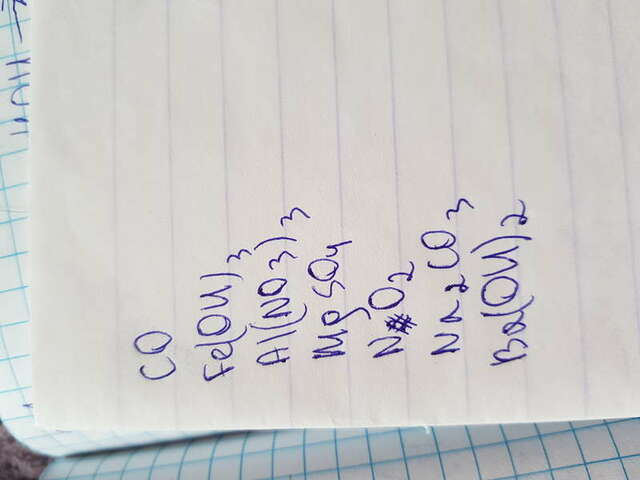 CO
Fe(OH)3
Al(NO3)3
MgSO4
NO2
Na2CO3
Ba(OH)2